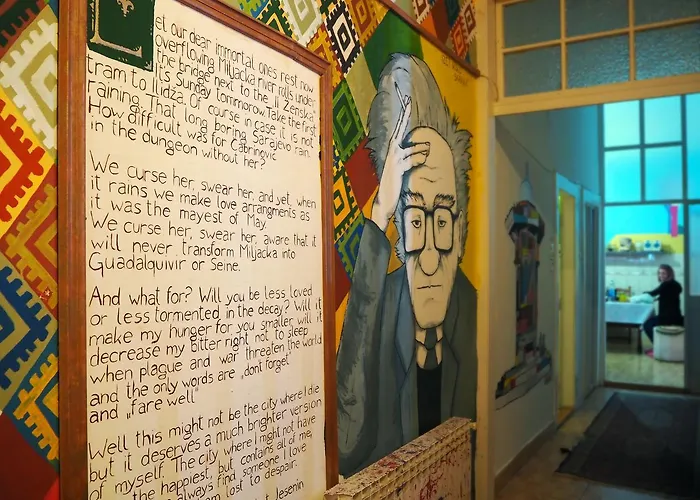 Let our dear immortal ones rest now
overflowing Miljacka river rolls under
the bridge next to the „II Ženska"
It's Sunday tommorow. Take the first
tram to Ilidža. Of course in case it is not
raining. That long boring Sarajevo rain.
How difficult was for Čabrinović
in the dungeon without her?
We curse her, swear her, and yet, when
it rains we make love arrangments as
it was the mayest of May.
We curse her, swear her, aware that it
will never transform Miljacka into
Guadalquivir or Seine.
And what for? Will you be less loved
or less tormented in the decay? Will it
make my hunger for you smaller will it
decrease my bitter right not to sleep
when plague and war threaten the world
and the only words are „dont forget"
and „fare well"
Well this might not be the city where I die
but it deserves a much brighter version
of myself. The city where I might not have
the happiest, but contains all of me,
always find someone I love
am lost to despair.
Jesenin